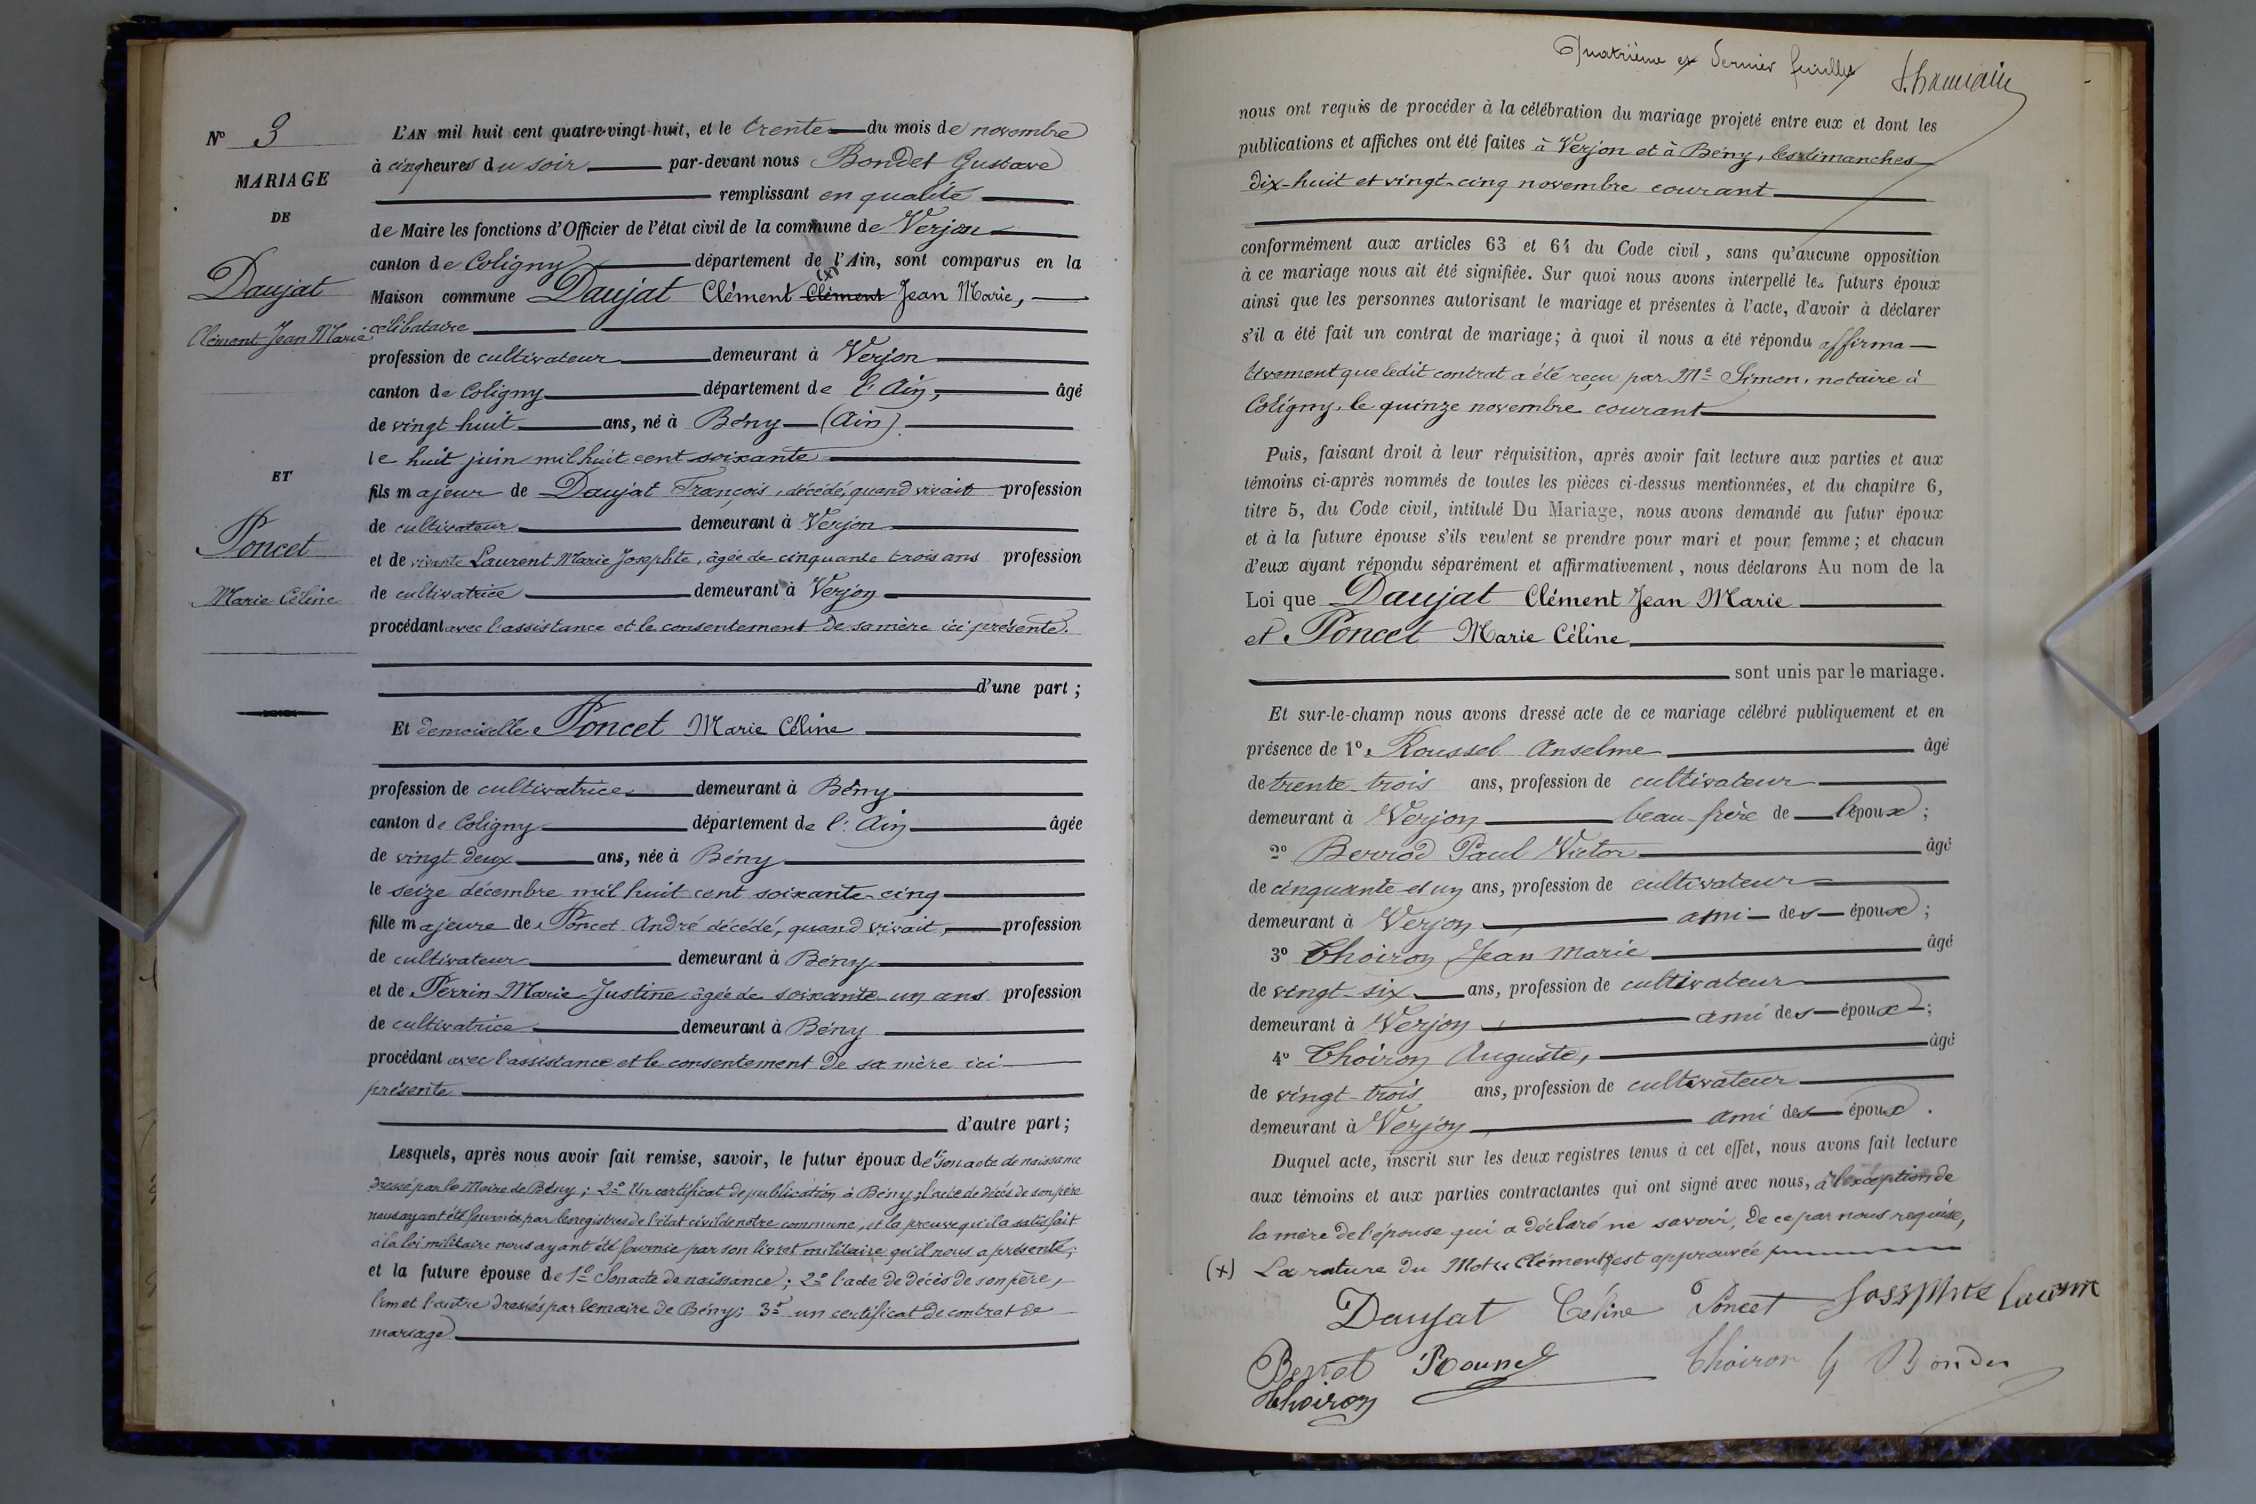 N° 3
MARIAGE
DE
Daujat
Clément Jean Marie
ET
Poncet
Marie Céline
L'AN mil huit cent quatre-vingt-huit, et le trente du mois de novembre
à cinq heures du soir par-devant nous Bondet Gustave
remplissant en qualité
de Maire les fonctions d'Officier de l'état civil de la commune de Verjon
canton de Coligny département de l'Ain, sont comparus en la
(x)
Maison commune Daujat Clément Clément Jean Marie,
célibataire
profession de cultivateur demeurant à Verjon
canton de Coligny département de l'Ain, âgé
de vingt huit ans, né à Bény (Ain)
le huit juin mil huit cent soixante
fils majeur de Daujat François, décédé, quand vivait profession
de cultivateur demeurant à Verjon
et de vivante Laurent Marie Josephte, âgée de cinquante trois ans profession
de cultivatrice demeurant à Verjon
procédant avec l'assistance et le consentement de sa mère ici présente.
d'une part ;
Et demoiselle Poncet Marie Céline
profession de cultivatrice demeurant à Bény
canton de Coligny département de l'Ain âgée
de vingt deux ans, née à Bény
le seize décembre mil huit cent soixante-cinq
fille majeure de Poncet André décédé, quand vivait, profession
de cultivateur demeurant à Bény
et de Perrin Marie Justine âgée de soixante-un ans profession
de cultivatrice demeurant à Bény
procédant avec l'assistance et le consentement de sa mère ici
présente
d'autre part ;
Lesquels, après nous avoir fait remise, savoir, le futur époux de 1° son acte de naissance
dressé par le Maire de Bény ; 2° Un certificat de publication à Bény ; l'acte de décès de son père
nous ayant été fournis par les registres de l'état civil de notre commune, et la preuve qu'il a satisfait
à la loi militaire nous ayant été fournie par son livret militaire qu'il nous a présenté ;
et la future épouse de 1° Son acte de naissance ; 2° l'acte de décès de son père,
l'un et l'autre dressés par le maire de Bény ; 3° un certificat de contrat de
mariage
Quatrième et dernier feuillet
nous ont requis de procéder à la célébration du mariage projeté entre eux et dont les
publications et affiches ont été faites à Verjon et à Bény, les dimanches
dix-huit et vingt-cinq novembre courant
conformément aux articles 63 et 64 du Code civil, sans qu'aucune opposition
à ce mariage nous ait été signifiée. Sur quoi nous avons interpellé les futurs époux
ainsi que les personnes autorisant le mariage et présentes à l'acte, d'avoir à déclarer
s'il a été fait un contrat de mariage ; à quoi il nous a été répondu affirma-
tivement que ledit contrat a été reçu par Me Simon, notaire à
Coligny, le quinze novembre courant
Puis, faisant droit à leur réquisition, après avoir fait lecture aux parties et aux
témoins ci-après nommés de toutes les pièces ci-dessus mentionnées, et du chapitre 6,
titre 5, du Code civil, intitulé Du Mariage, nous avons demandé au futur époux
et à la future épouse s'ils veulent se prendre pour mari et pour femme ; et chacun
d'eux ayant répondu séparément et affirmativement, nous déclarons Au nom de la
Loi que Daujat Clément Jean Marie
et Poncet Marie Céline
sont unis par le mariage.
Et sur-le-champ nous avons dressé acte de ce mariage célébré publiquement et en
présence de 1° Roussel Anselme âgé
de trente trois ans, profession de cultivateur
demeurant à Verjon beau-frère de l'époux ;
2° Berrod Paul Victor âgé
de cinquante et un ans, profession de cultivateur
demeurant à Verjon ami des époux ;
3° Thoiron Jean Marie âgé
de vingt-six ans, profession de cultivateur
demeurant à Verjon, ami des époux ;
4° Thoiron Auguste, âgé
de vingt-trois ans, profession de cultivateur
demeurant à Verjon, ami des époux.
Duquel acte, inscrit sur les deux registres tenus à cet effet, nous avons fait lecture
aux témoins et aux parties contractantes qui ont signé avec nous, à l'exception de
la mère de l'épouse qui a déclaré ne savoir, de ce par nous requise,
(x) La rature du Mot « Clément » est approuvée
Daujat Céline Poncet Josephte Laurent
Berrod Thoiron G Bondet
Thoiron